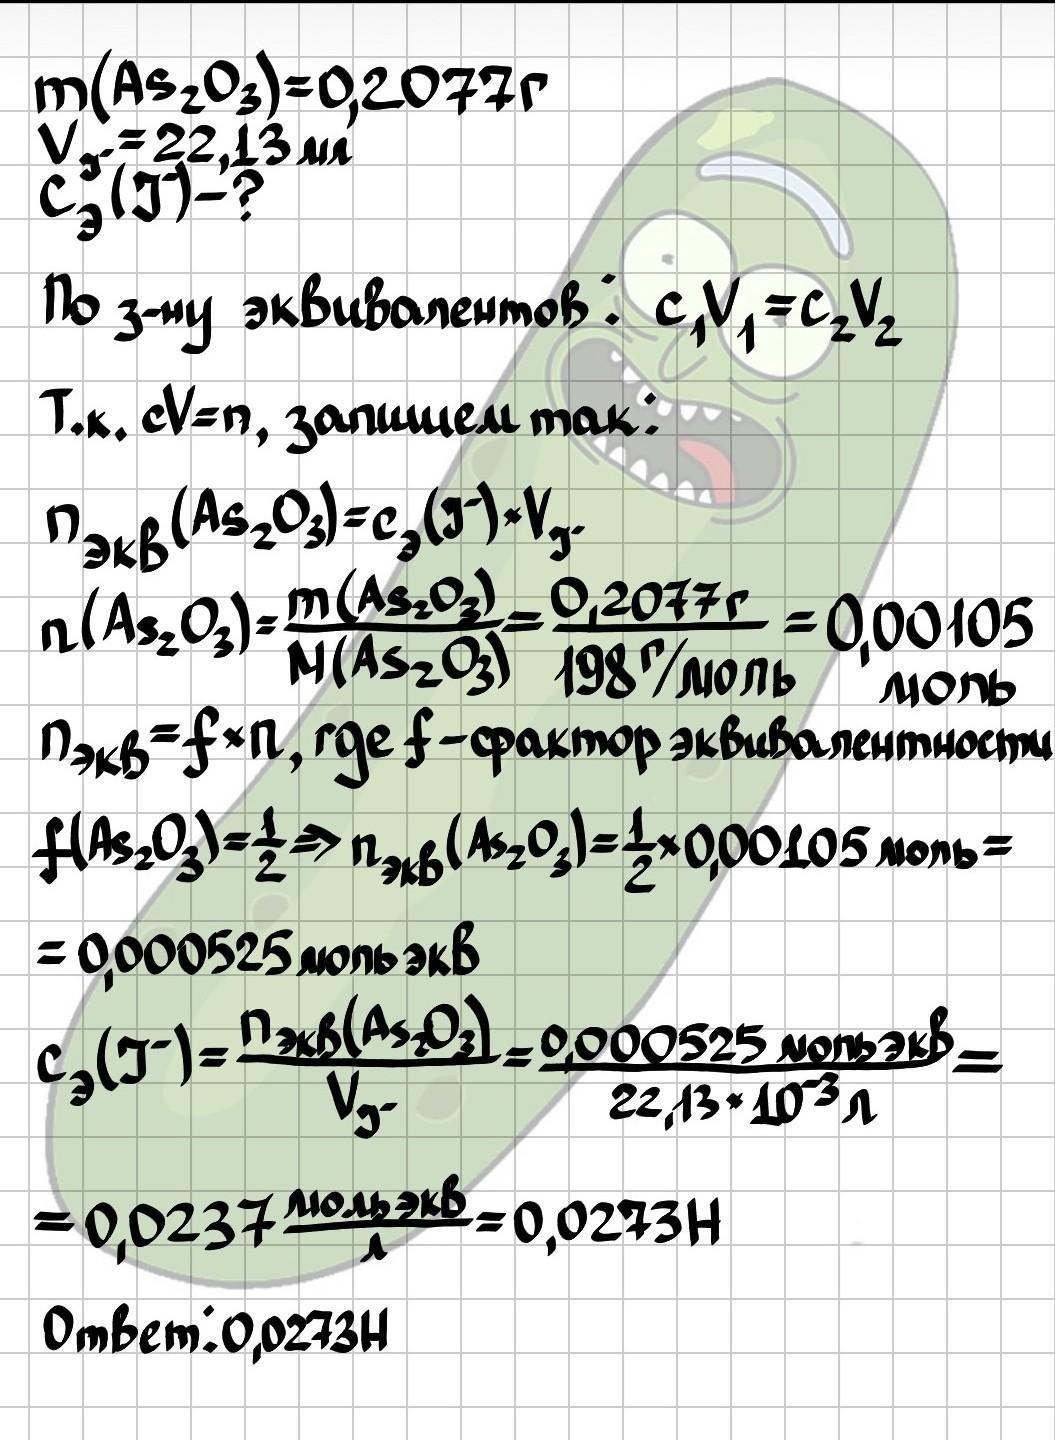 m(As₂O₃)=0,2077г
V_J⁻=22,13мл
C_э(J⁻)-?
По з-ну эквивалентов: c₁V₁=c₂V₂
Т.к. cV=n, запишем так:
n_экв(As₂O₃)=c_э(J⁻)×V_J⁻
n(As₂O₃)=m(As₂O₃)/M(As₂O₃)=0,2077г/198г/моль=0,00105 моль
n_экв=f×n, где f-фактор эквивалентности
f(As₂O₃)=1/2⇒n_экв(As₂O₃)=1/2×0,00105моль=
=0,000525мольэкв
c_э(J⁻)=n_экв(As₂O₃)/V_J⁻=0,000525мольэкв/22,13×10⁻³л=
=0,0237мольэкв/л=0,0273Н
Ответ:0,0273Н